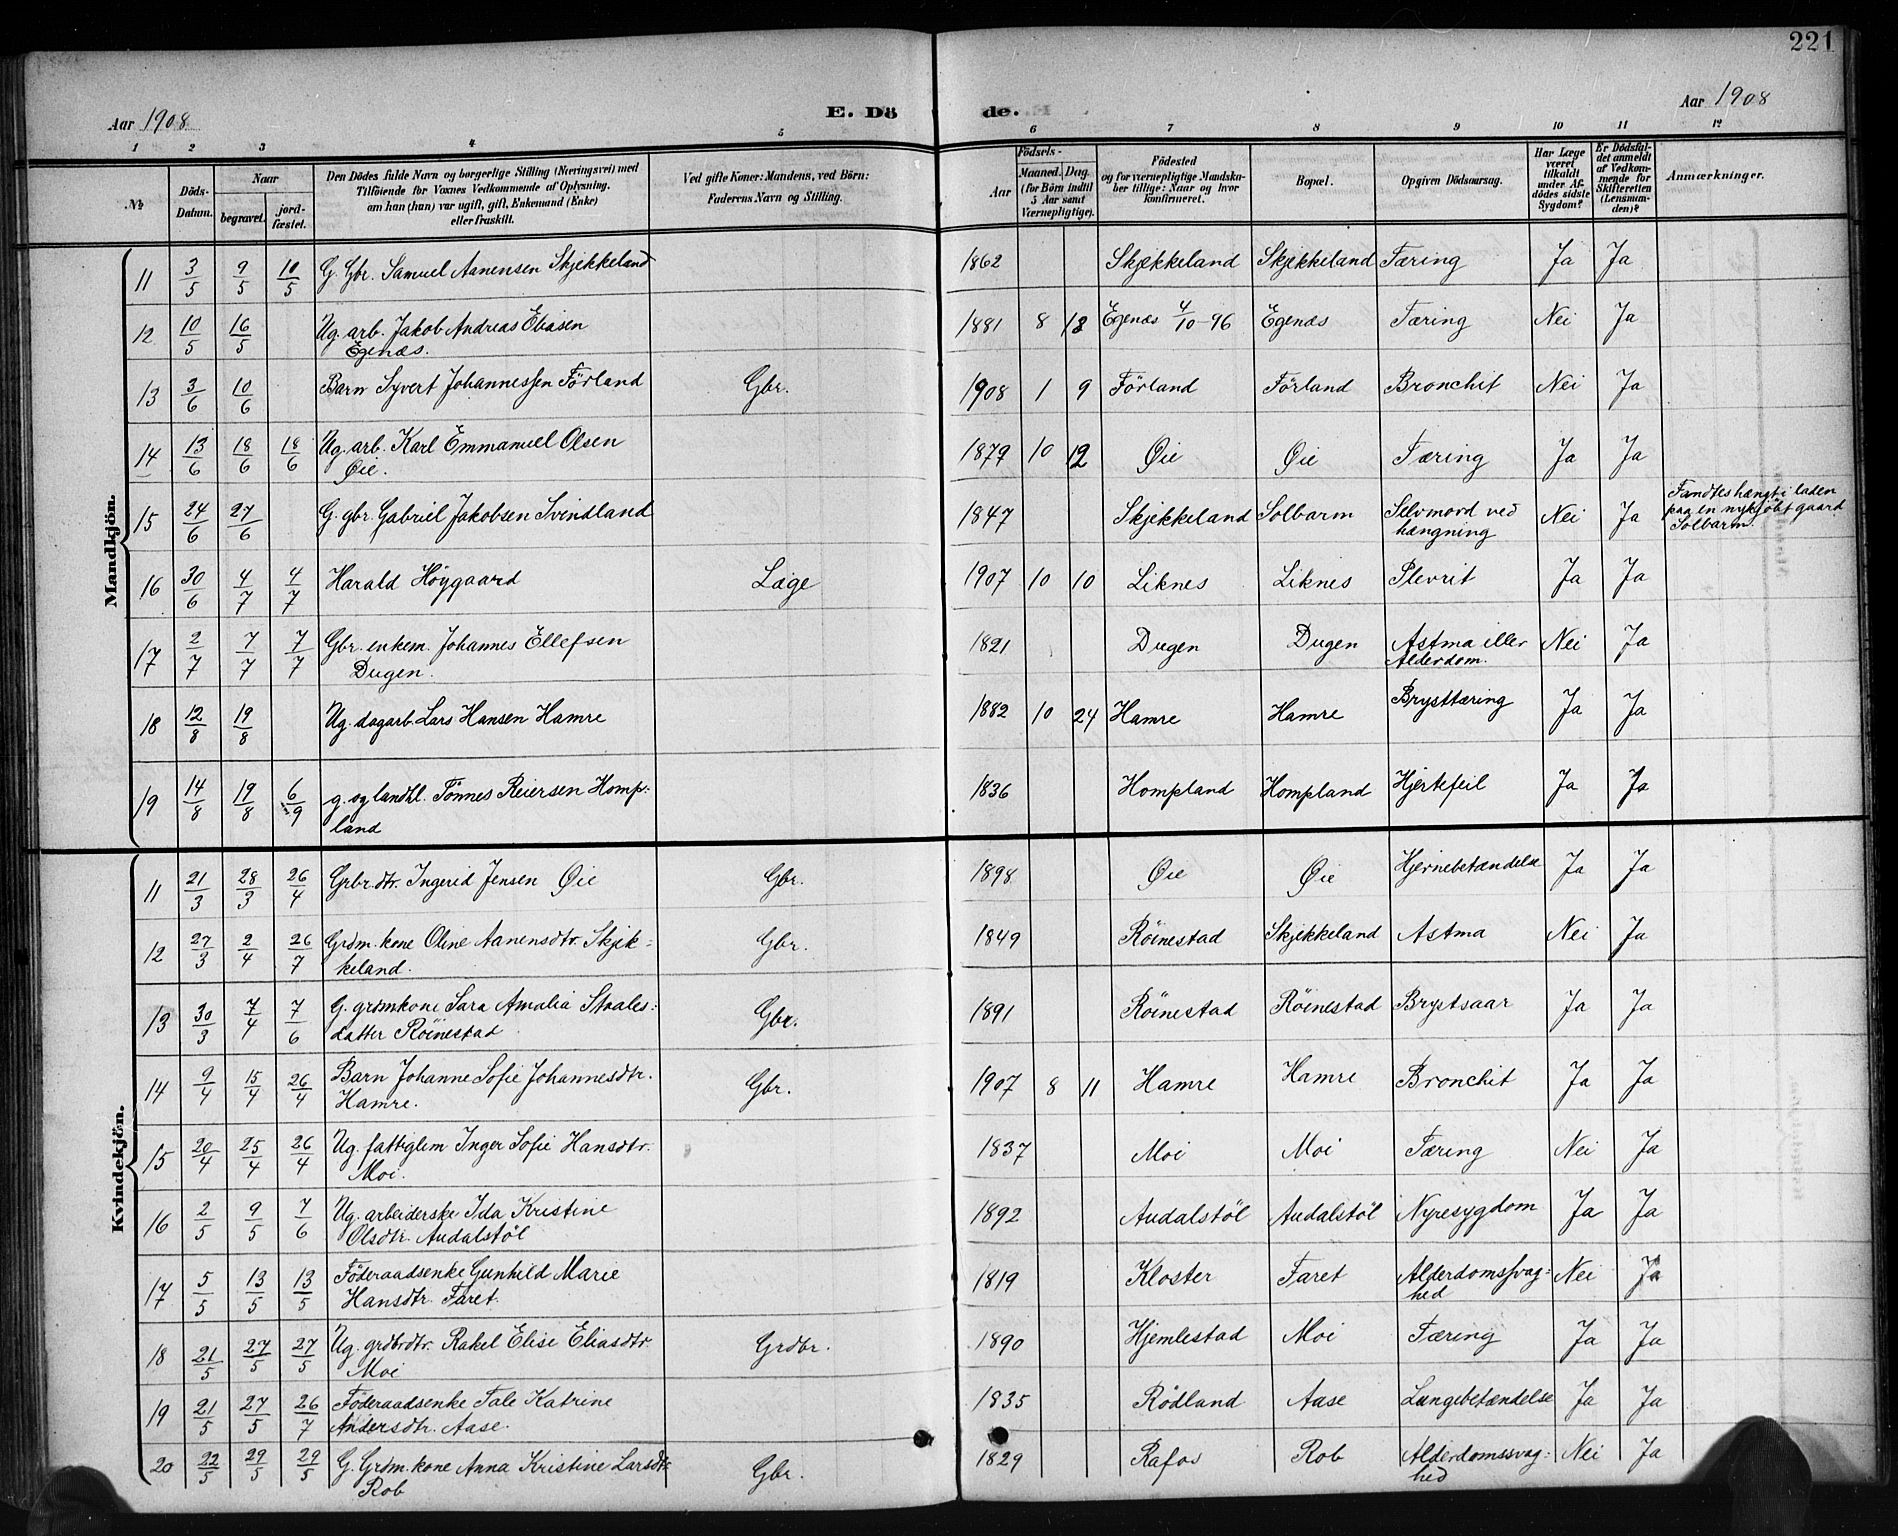 221
Aar 1908 E. Dö de. Aar 1908
1 2 3 4 5 6 7 8 9 10 11 12
№
Döds-Datum.
Naar
begravet.
jord-fæstet.
Den Dödes fulde Navn og borgerlige Stilling (Næringsvei) med
Tilföiende for Voxnes Vedkommende af Oplysning,
om han (hun) var ugift, gift, Enkemand (Enke)
eller fraskilt.
Ved gifte Koner: Mandens, ved Börn:
Faderens Navn og Stilling.
Födsels-
Aar
Maaned. Dag.
(for Börn indtil
5 Aar samt
Værnepligtige).
Födested
og for værnepligtige Mandska-
ber tillige: Naar og hvor
konfirmeret.
Bopæl.
Opgiven Dödsaarsag.
Har Læge
været
tilkaldt
under Af-
dödes sidste
Sygdom?
Er Dödsfal-
det anmeldt
af Vedkom-
mende for
Skifteretten
(Lensman-
den)?
Anmærkninger.
Mandkjön.
11 3/5 9/5 10/5 G. Gbr. Samuel Aanensen Skjekkeland 1862 Skjekkeland Skjekkeland Tæring Ja Ja
12 10/5 16/5 Ug. arb. Jakob Andreas Eliasen
Egenæs. 1881 8 13 Egenæs 4/10-96 Egenæs Tæring Nei Ja
13 3/6 10/6 Barn Syvert Johannessen Förland Gbr. 1908 1 9 Förland Förland Bronchit Nei Ja
14 13/6 18/6 18/6 Ug. arb. Karl Emmanuel Olsen
Øie. 1879 10 12 Øie Øie Tæring Ja Ja
15 24/6 27/6 G. gbr. Gabriel Jakobsen Svindland 1847 Skjekkeland Solbarm Selvmord ved
hængning Nei Ja Fandtes hængt i laden
paa en nykjöbt gaard
Solbarm.
16 30/6 4/7 4/7 Harald Höygaard Læge 1907 10 10 Liknes Liknes Plevrit Ja Ja
17 2/7 7/7 7/7 Gbr. enkem. Johannes Ellefsen
Dugen. 1821 Dugen Dugen Astma eller
Alderdom. Nei Ja
18 12/8 19/8 Ug. dagarb. Lars Hansen Hamre 1882 10 24 Hamre Hamre Brysttæring Ja Ja
19 14/8 19/8 6/9 g. og landhl. Tönnes Reiersen Homp-
land 1836 Hompland Hompland Hjertefeil Ja Ja
Kvindekjön.
11 21/3 28/3 26/4 Grbr.dtr. Ingerid Jensen Øie Gbr. 1898 Øie Øie Hjernebetændelse Ja Ja
12 27/3 2/4 26/7 Grdm. kone Oline Aanensdtr. Skjek-
keland. Gbr. 1849 Röinestad Skjekkeland Astma Nei Ja
13 30/3 7/4 7/6 G. grdmkone Sara Amalia Staales-
datter Röinestad Gbr. 1891 Röinestad Röinestad Brystsaar Ja Ja
14 9/4 15/4 26/4 Barn Johanne Sofie Johannesdtr.
Hamre. Gbr. 1907 8 11 Hamre Hamre Bronchit Ja Ja
15 20/4 25/4 26/4 Ug. fattiglem Inger Sofie Hansdtr.
Moi. 1837 Moi Moi Tæring Nei Ja
16 2/5 9/5 7/6 Ug. arbeiderske Ida Kristine
Olsdtr. Audalstöl 1892 Audalstöl Audalstöl Nyresygdom Ja Ja
17 5/5 13/5 13/5 Föderaadsenke Gunhild Marie
Hansdtr. Faret. 1819 Kloster Faret Alderdomssvag-
hed Nei Ja
18 21/5 27/5 27/5 Ug. grdbrdtr. Rakel Elise Eliasdtr.
Moi Grdbr. 1890 Hjemlestad Moi Tæring Ja Ja
19 21/5 27/5 26/7 Föderaadsenke Tale Katrine
Andersdtr. Aase. 1835 Rödland Aase Lungebetændelse Ja Ja
20 22/5 29/5 29/5 G. Grdm. kone Anna Kristine Larsdtr.
Rob Gbr. 1829 Rafos Rob Alderdomssvag-
hed Nei Ja